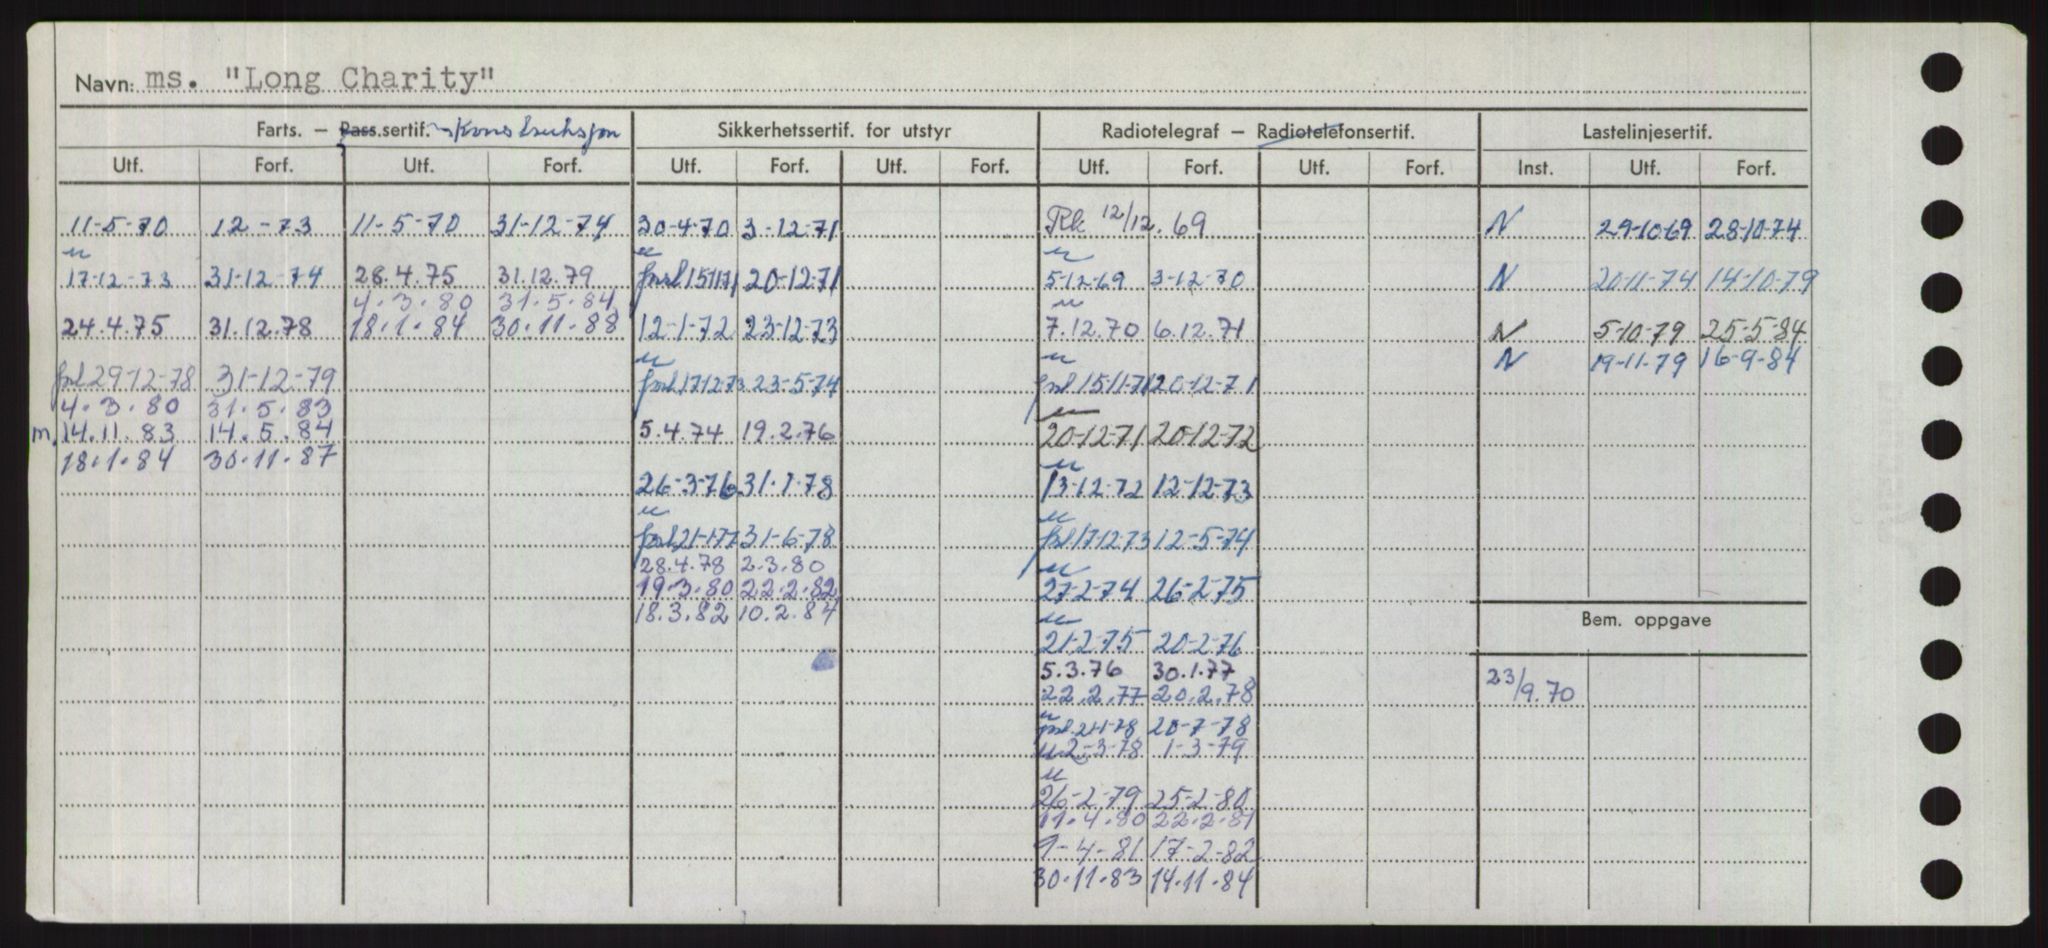 Navn: ms. "Long Charity"
Farts. – Pass.sertif. Konstruksjon Sikkerhetssertif. for utstyr Radiotelegraf – Radiotelefonsertif. Lastelinjesertif.
Utf. Forf. Utf. Forf. Utf. Forf. Utf. Forf. Utf. Forf. Utf. Forf. Inst. Utf. Forf.
11-5-70 12-73 11-5-70 31-12-74 30-4-70 3-12-71 Rk 12/12.69 N 29-10-69 28-10-74
17-12-73 31-12-74 28.4.75 31.12.79 forl 15/11 71 20-12-71 5-12-69 3-12-70 N 20-11-74 14-10-79
4.3.80 31.5.84
24.4.75 31.12.78 18.1.84 30.11.88 12-1-72 23-12-73 7.12.70 6.12.71 N 5-10-79 25-5-84
N 19-11-79 16-9-84
forl 29-12-78 31-12-79 forl 17-12-73 23-5-74 forl 15-11-71 20-12-71
4.3.80 31.5.83
m. 14.11.83 14.5.84 5.4.74 19.2.76 20-12-71 20-12-72
18.1.84 30.11.87
26-3-76 31.1.78 13-12-72 12-12-73
forl 21-1-77 31-6-78 forl 17-12-73 12-5-74
28.4.78 2.3.80
19.3.80 22.2.82 27-2-74 26-2-75
18.3.82 10.2.84
Bem. oppgave
21-2-75 20-2-76
5.3.76 30.1.77
22.2.77 20.2.78 23/9.70
forl. 21-1-78 20-7-78
2-3-78 1-3-79
26-2-79 25-2-80
11.4.80 22.2.81
9-4-81 17-2-82
30.11.83 14.11.84